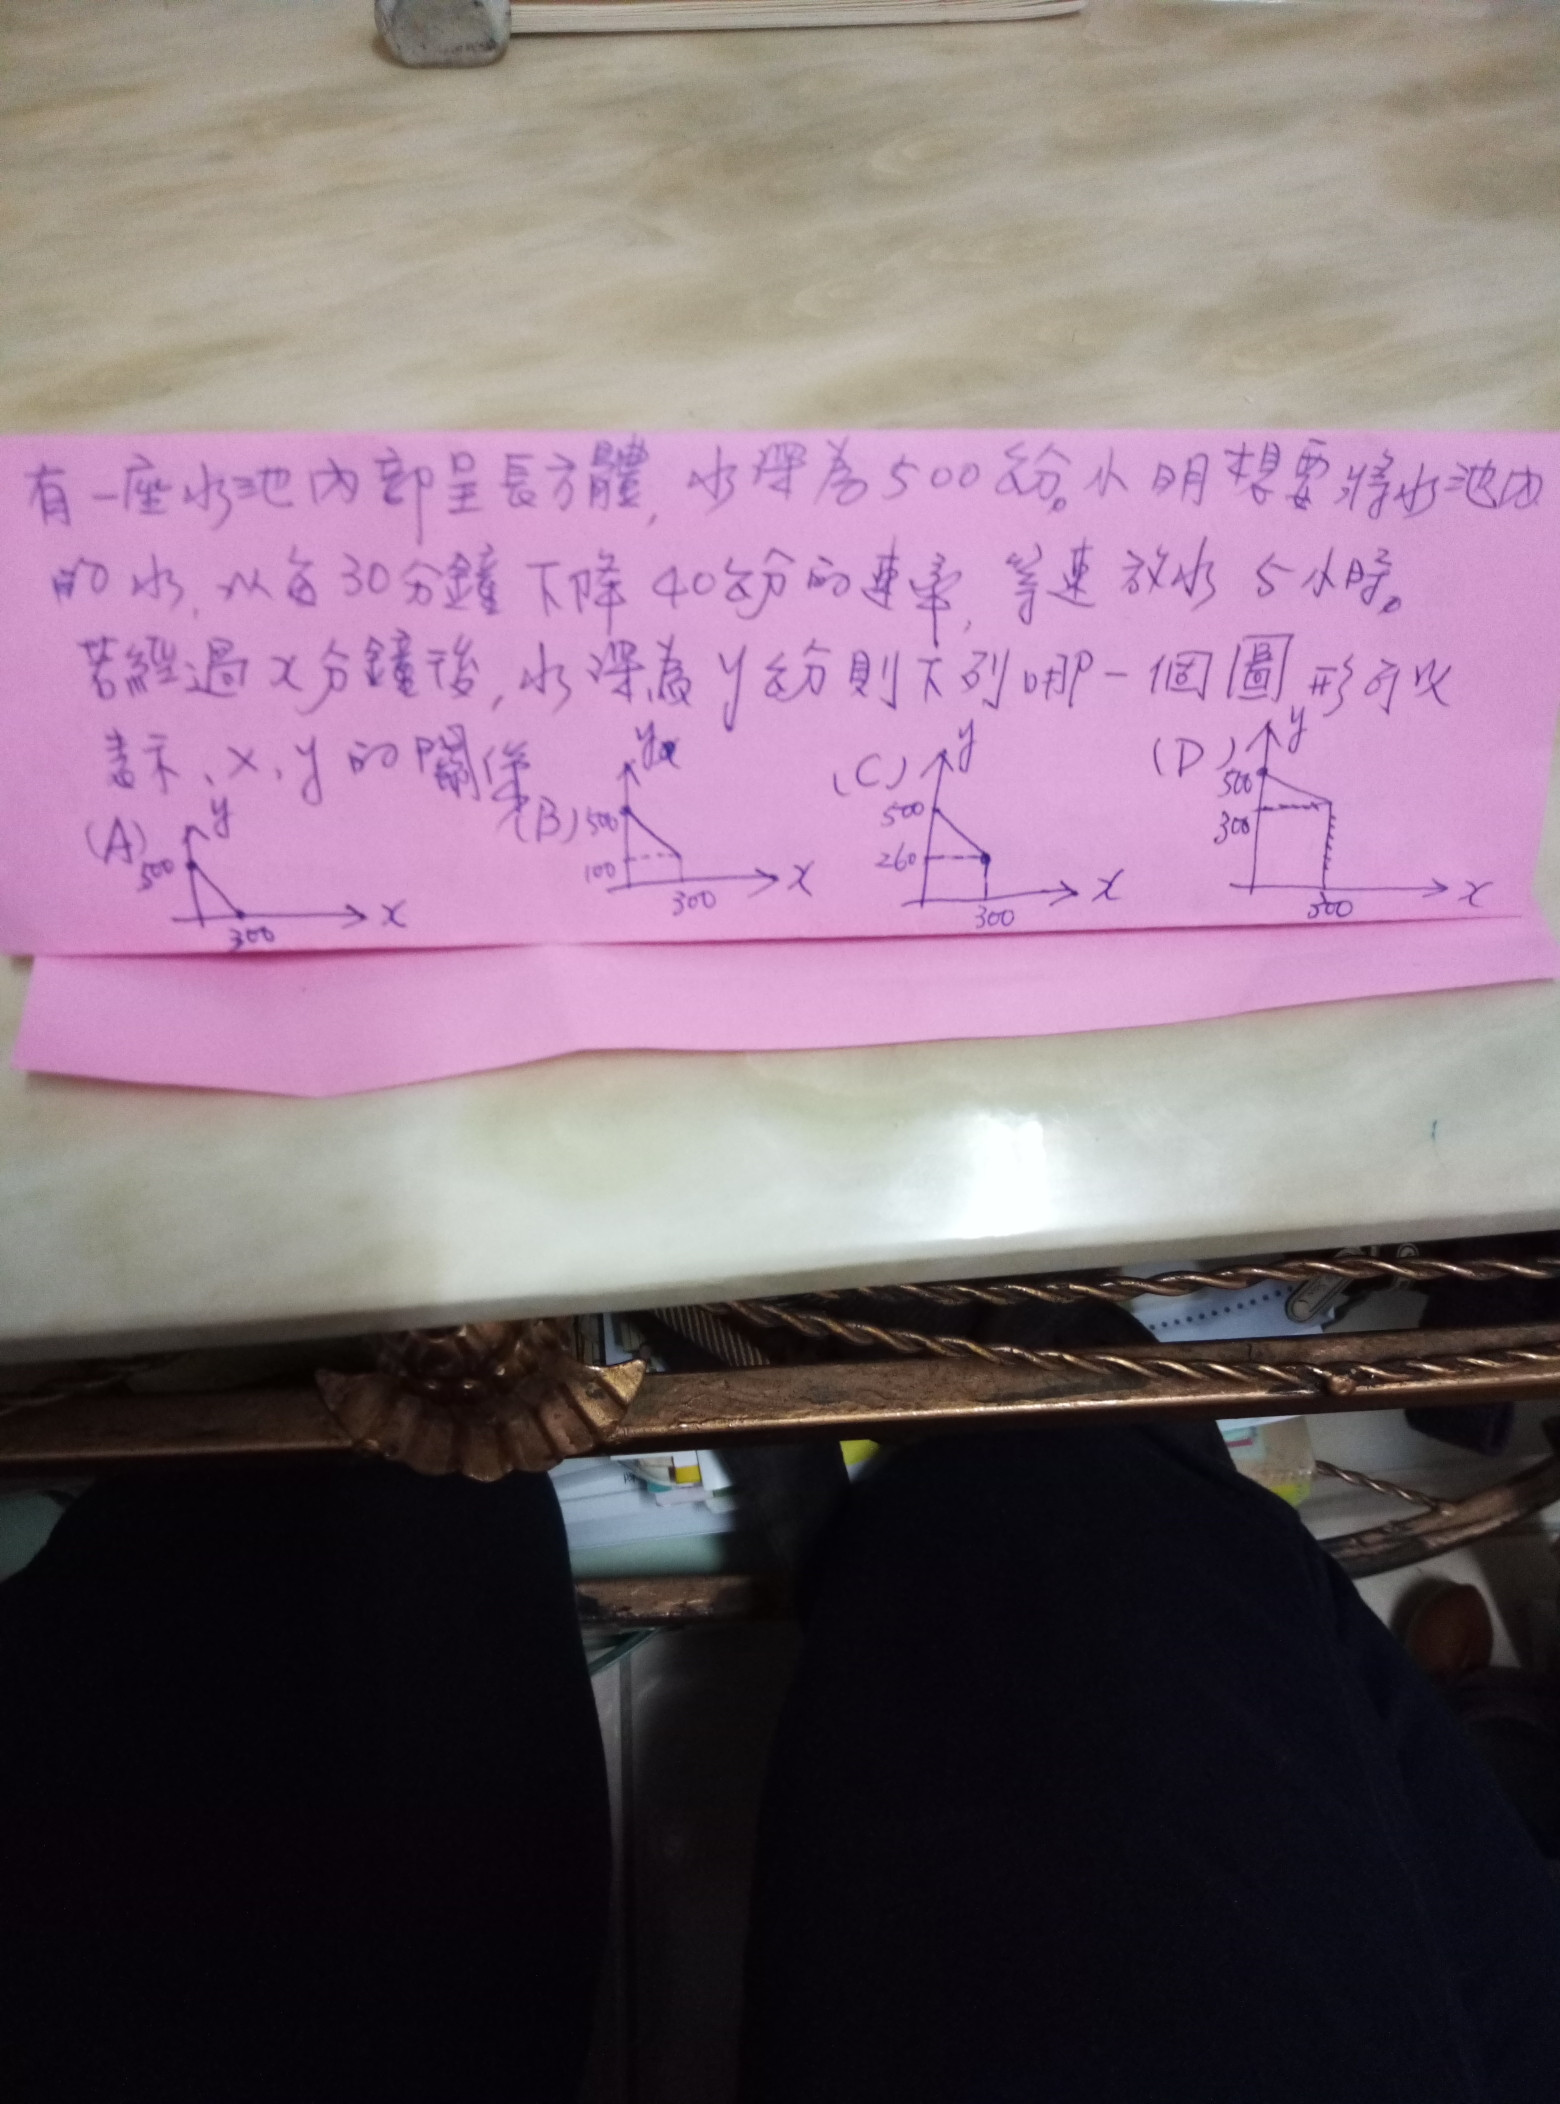 有一座水池內部呈長方體,水深為500公分。小明想要將水池內
的水,以每30分鐘下降40公分的速率,等速放水5小時。
若經過x分鐘後,水深為y公分則下列哪一個圖形可以
表示、x、y的關係
(A) y 500 300 x
(B) y 500 100 300 x
(C) y 500 260 300 x
(D) y 500 300 300 x